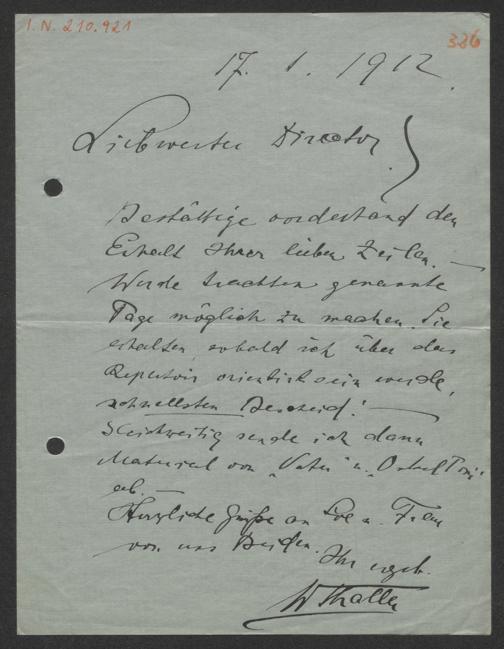 I. N. 210.921
336
17. 1. 1912.
Liebwerter Director!
Bestättige vorderhand den
Erhalt Ihrer lieben Zeilen. —
Werde trachten genannte
Tage möglich zu machen. Sie
erhalten, sobald ich über das
Repertoir orientirt sein werde,
schnellsten Bescheid! —
Gleichzeitig sende ich dann
Material von „Vater“ u. „Onkel Toni“
ab. —
Herzliche Grüße an Sie u. Frau
von uns Beiden.
Ihr ergeb.
WThaller